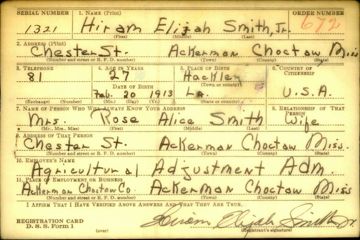 SERIAL NUMBER 1. NAME (Print) ORDER NUMBER
1321 Hiram Elijah Smith, Jr. 672
(First) (Middle) (Last)
2. ADDRESS (Print)
Chester St. Ackerman Choctaw Miss
(Number and street or R. F. D. number) (Town) (County) (State)
3. TELEPHONE 4. AGE IN YEARS 5. PLACE OF BIRTH 6. COUNTRY OF CITIZENSHIP
81 27 Hackley
DATE OF BIRTH
Feb. 20 1913 La. U.S.A.
(Mo.) (Day) (Yr.) (State or country)
7. NAME OF PERSON WHO WILL ALWAYS KNOW YOUR ADDRESS 8. RELATIONSHIP OF THAT PERSON
Mrs. Rose Alice Smith Wife
(Mr., Mrs., Miss) (First) (Middle) (Last)
9. ADDRESS OF THAT PERSON
Chester St. Ackerman Choctaw Miss.
(Number and street or R. F. D. number) (Town) (County) (State)
10. EMPLOYER'S NAME
Agricultural Adjustment Adm.
11. PLACE OF EMPLOYMENT OR BUSINESS
Ackerman Choctaw Co. Ackerman Choctaw Miss
(Number and street or R. F. D. number) (Town) (County) (State)
I AFFIRM THAT I HAVE VERIFIED ABOVE ANSWERS AND THAT THEY ARE TRUE.
REGISTRATION CARD
D. S. S. Form 1 (over) Hiram Elijah Smith Jr
(Registrant's signature)